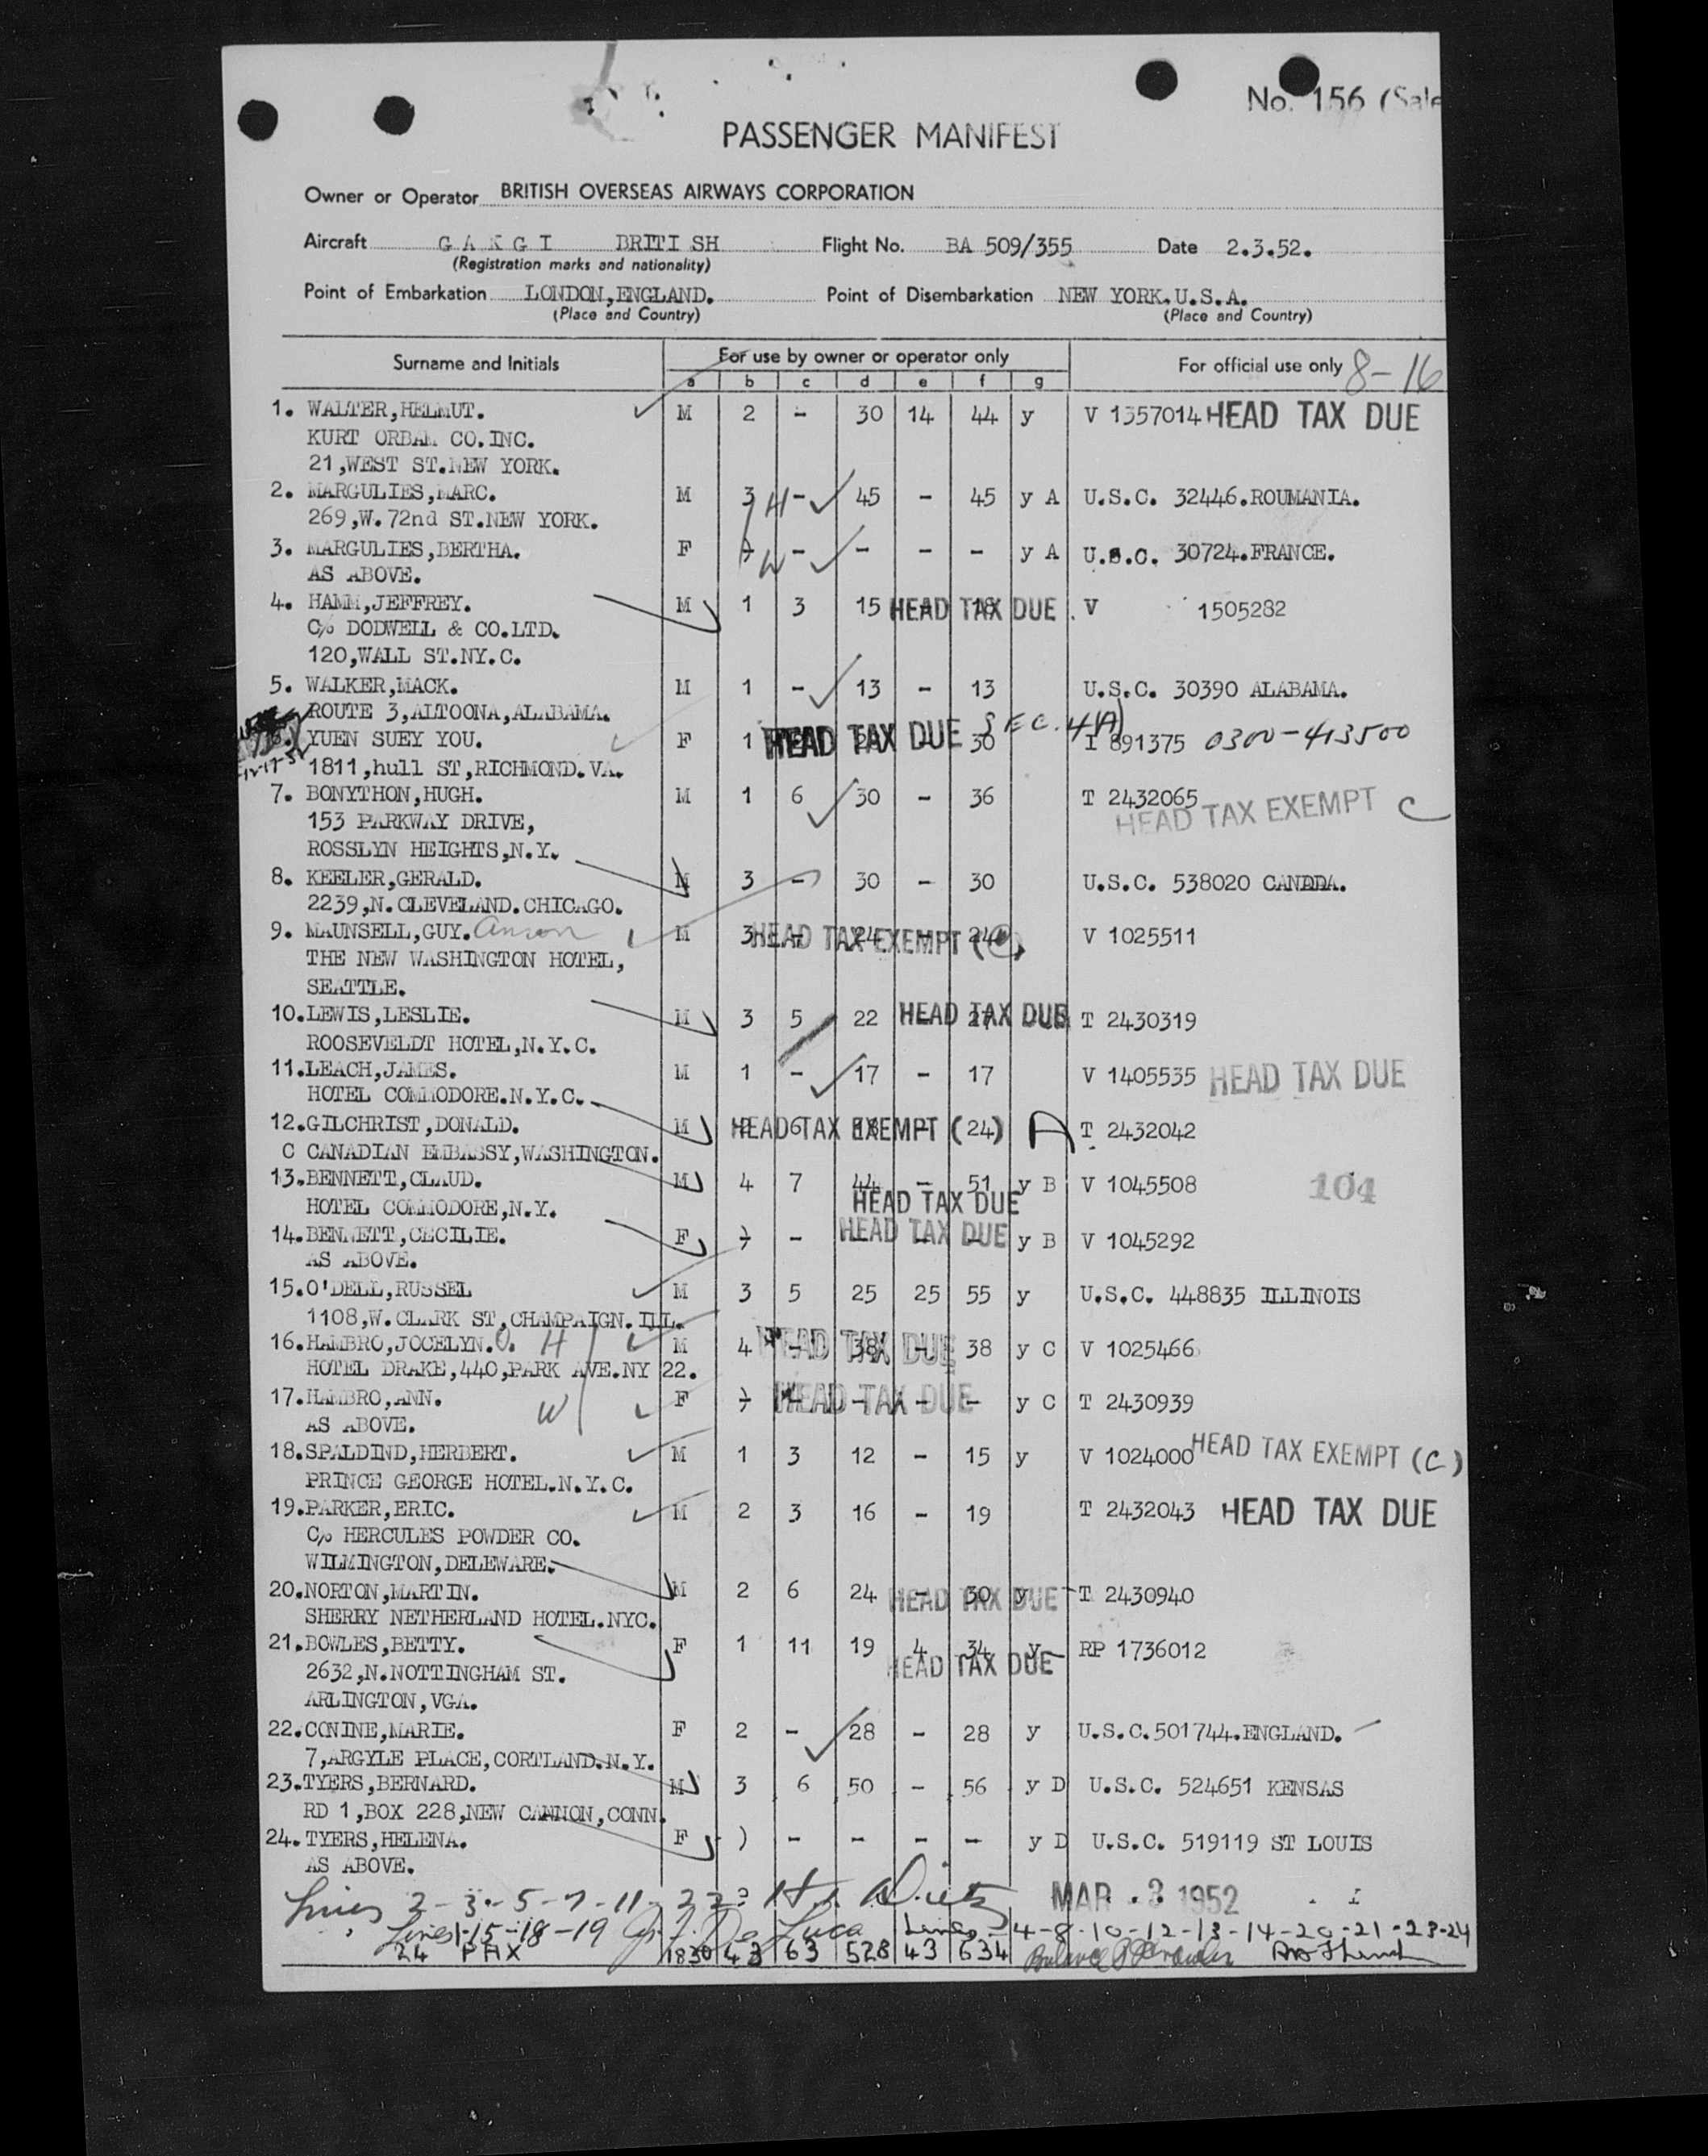 No. 156 (Sale
PASSENGER MANIFEST
Owner or Operator BRITISH OVERSEAS AIRWAYS CORPORATION
Aircraft G A K G I BRITISH Flight No. BA 509/355 Date 2.3.52.
(Registration marks and nationality)
Point of Embarkation LONDON,ENGLAND. Point of Disembarkation NEW YORK.U.S.A.
(Place and Country) (Place and Country)
Surname and Initials For use by owner or operator only For official use only 8-16
a b c d e f g
1. WALTER,HELMUT. M 2 - 30 14 44 y V 1357014 HEAD TAX DUE
KURT ORBAN CO.INC.
21,WEST ST.NEW YORK.
2. MARGULIES,MARC. M 3 H - 45 - 45 y A U.S.C. 32446.ROUMANIA.
269,W.72nd ST.NEW YORK.
3. MARGULIES,BERTHA. F ) W - - - - y A U.S.C. 30724.FRANCE.
AS ABOVE.
4. HAMM,JEFFREY. M 1 3 15 - 18 HEAD TAX DUE V 1505282
C/o DODWELL & CO.LTD.
120,WALL ST.NY.C.
5. WALKER,MACK. M 1 - 13 - 13 U.S.C. 30390 ALABAMA.
ROUTE 3,ALTOONA,ALABAMA.
6. YUEN SUEY YOU. F 1 HEAD TAX DUE SEC. 4(A) - 30 I 891375 0300-413500
1811,hull ST,RICHMOND.VA.
7. BONYTHON,HUGH. M 1 6 30 - 36 T 2432065
153 PARKWAY DRIVE, HEAD TAX EXEMPT C
ROSSLYN HEIGHTS,N.Y.
8. KEELER,GERALD. M 3 - 30 - 30 U.S.C. 538020 CANDDA.
2239,N.CLEVELAND.CHICAGO.
9. MAUNSELL,GUY. Anson M 3 - 24 - 24 HEAD TAX EXEMPT (C) V 1025511
THE NEW WASHINGTON HOTEL,
SEATTLE.
10.LEWIS,LESLIE. M 3 5 22 - 27 HEAD TAX DUE T 2430319
ROOSEVELDT HOTEL,N.Y.C.
11.LEACH,JAMES. M 1 - 17 - 17 V 1405535 HEAD TAX DUE
HOTEL COMMODORE.N.Y.C.
12.GILCHRIST,DONALD. M 2 6 18 - 24 HEAD TAX EXEMPT ( ) A T 2432042
C CANADIAN EMBASSY,WASHINGTON.
13.BENNETT,CLAUD. M 4 7 44 - 51 y B V 1045508 104
HOTEL COMMODORE,N.Y. HEAD TAX DUE
14.BENNETT,CECILIE. F ) - - - - HEAD TAX DUE y B V 1045292
AS ABOVE.
15.O'DELL,RUSSEL M 3 5 25 25 55 y U.S.C. 448835 ILLINOIS
1108,W.CLARK ST,CHAMPAIGN.ILL.
16.HAMBRO,JOCELYN.O. H M 4 - 38 - 38 HEAD TAX DUE y C V 1025466
HOTEL DRAKE,440,PARK AVE.NY 22.
17.HAMBRO,ANN. W F ) - - - - HEAD TAX DUE y C T 2430939
AS ABOVE.
18.SPALDIND,HERBERT. M 1 3 12 - 15 y V 1024000 HEAD TAX EXEMPT (C)
PRINCE GEORGE HOTEL.N.Y.C.
19.PARKER,ERIC. M 2 3 16 - 19 T 2432043 HEAD TAX DUE
C/o HERCULES POWDER CO.
WILMINGTON,DELEWARE.
20.NORTON,MARTIN. M 2 6 24 - 30 y HEAD TAX DUE T 2430940
SHERRY NETHERLAND HOTEL.NYC.
21.BOWLES,BETTY. F 1 11 19 4 34 y RP 1736012
2632,N.NOTTINGHAM ST. HEAD TAX DUE
ARLINGTON,VGA.
22.CONINE,MARIE. F 2 - 28 - 28 y U.S.C.501744.ENGLAND.
7,ARGYLE PLACE,CORTLAND.N.Y.
23.TYERS,BERNARD. M 3 6 50 - 56 y D U.S.C. 524651 KENSAS
RD 1,BOX 228,NEW CANNON,CONN.
24.TYERS,HELENA. F ) - - - - y D U.S.C. 519119 ST LOUIS
AS ABOVE.
Lines 2-3-5-7-11-22 MAR 3 1952
Lines 1-15-18-19 De Luca Lines 4-8-10-12-13-14-20-21-23-24
24 PAX 1830 43 63 528 43 634 Balance